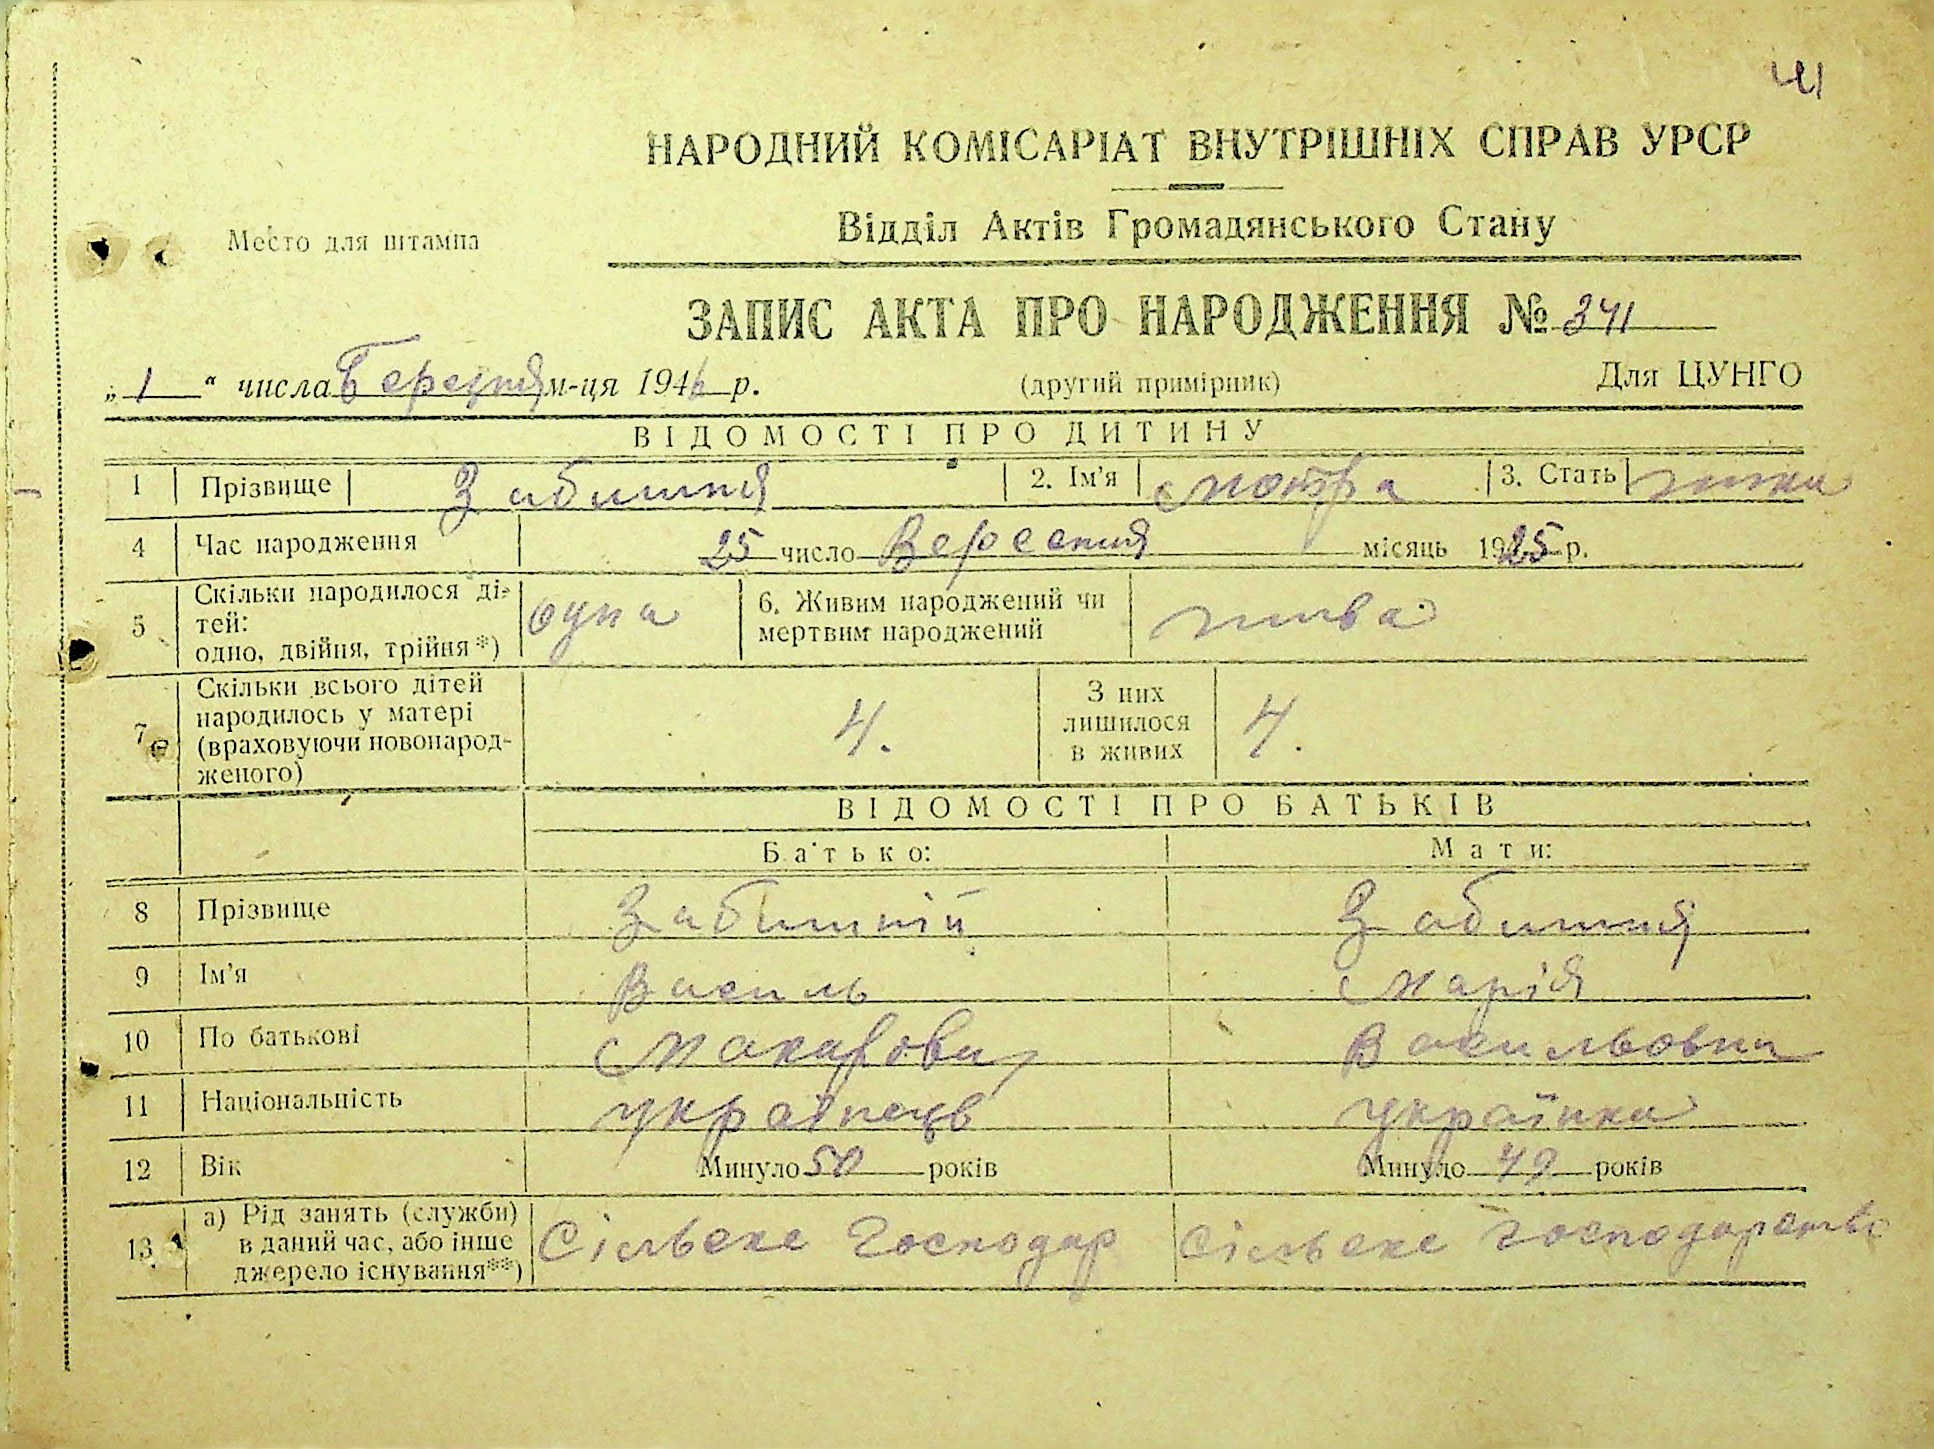 41
НАРОДНИЙ КОМІСАРІАТ ВНУТРІШНІХ СПРАВ УРСР
Відділ Актів Громадянського Стану
Место для штампа
ЗАПИС АКТА ПРО НАРОДЖЕННЯ № 341
„1“ числа Березня м-ця 1946 р. (другий примірник) Для ЦУНГО
ВІДОМОСТІ ПРО ДИТИНУ
1 Прізвище Забишня 2. Ім'я Мотря 3. Стать жінка
4 Час народження 25 число Вересення місяць 1925 р.
5 Скільки народилося ді-
тей:
одно, двійня, трійня*) одна 6. Живим народжений чи
мертвим народжений жива
7 Скільки всього дітей
народилось у матері
(враховуючи новонарод-
женого) 4. З них
лишилося
в живих 4.
ВІДОМОСТІ ПРО БАТЬКІВ
Батько: Мати:
8 Прізвище Забишній Забишня
9 Ім'я Василь Марія
10 По батькові Макарович Васильовна
11 Національність українець українка
12 Вік Минуло 50 років Минуло 49 років
13 а) Рід занять (служби)
в даний час, або інше
джерело існування**) Сільске господар Сільске господарство